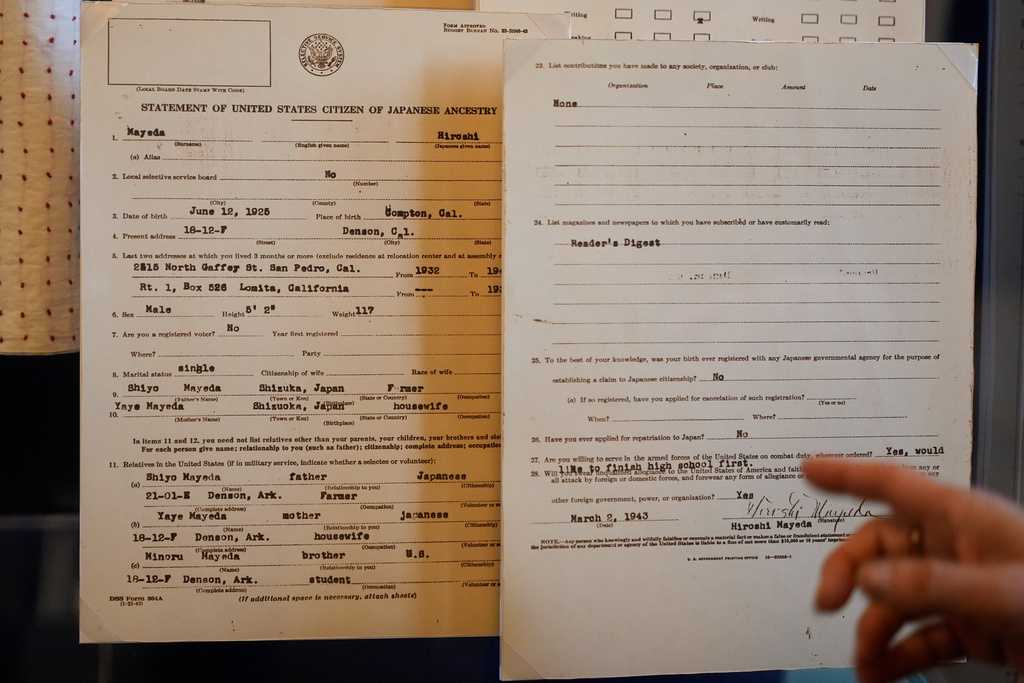 Writing
Writing
FORM APPROVED
BUDGET BUREAU NO.
SELECTIVE SERVICE SYSTEM
(LOCAL BOARD DATE STAMP WITH CODE)
STATEMENT OF UNITED STATES CITIZEN OF JAPANESE ANCESTRY
1. Mayeda Hiroshi
(Surname) (English given name) (Japanese given name)
(a) Alias
2. Local selective service board No
(Number)
(City) (County) (State)
3. Date of birth June 12, 1925 Place of birth Compton, Cal.
4. Present address 18-12-F Denson, Cal.
(Street) (City) (State)
5. Last two addresses at which you lived 3 months or more (exclude residence at relocation center and at assembly
2815 North Gaffey St. San Pedro, Cal. From 1932 To 194
Rt. 1, Box 526 Lomita, California From --- To 193
6. Sex Male Height 5' 2" Weight 117
7. Are you a registered voter? No Year first registered
Where? Party
8. Marital status single Citizenship of wife Race of wife
9. Shiyo Mayeda Shizuka, Japan Farmer
(Father's Name) (Town or Ken) (State or Country) (Occupation)
(Birthplace)
10. Yaye Mayeda Shizuoka, Japan housewife
(Mother's Name) (Town or Ken) (State or Country) (Occupation)
(Birthplace)
In items 11 and 12, you need not list relatives other than your parents, your children, your brothers and
For each person give name; relationship to you (such as father); citizenship; complete address; occupation
11. Relatives in the United States (if in military service, indicate whether a selectee or volunteer):
(a) Shiyo Mayeda father Japanese
(Name) (Relationship to you) (Citizenship)
21-01-E Denson, Ark. Farmer
(Complete address) (Occupation) (Volunteer or
(b) Yaye Mayeda mother japanese
(Name) (Relationship to you) (Citizenship)
18-12-F Denson, Ark. housewife
(Complete address) (Occupation) (Volunteer or
(c) Minoru Mayeda brother U.S.
(Name) (Relationship to you) (Citizenship)
18-12-F Denson, Ark. student
(Complete address) (Occupation) (Volunteer or
DSS Form 304A
(1-23-43)
(If additional space is necessary, attach sheets)
23. List contributions you have made to any society, organization, or club:
Organization Place Amount Date
None
24. List magazines and newspapers to which you have subscribed or have customarily read:
Reader's Digest
25. To the best of your knowledge, was your birth ever registered with any Japanese governmental agency for the purpose of
establishing a claim to Japanese citizenship? No
(a) If so registered, have you applied for cancelation of such registration?
(Yes or no)
When? Where?
26. Have you ever applied for repatriation to Japan? No
27. Are you willing to serve in the armed forces of the United States on combat duty, wherever ordered? Yes, would
like to finish high school first.
28. Will you swear unqualified allegiance to the United States of America and from any or
all attack by foreign or domestic forces, and forswear any form of allegiance or
other foreign government, power, or organization? Yes
March 2, 1943 Hiroshi Mayeda
(Date) (Signature)
Hiroshi Mayeda
NOTE.—Any person who knowingly and wilfully falsifies or conceals a material fact or makes a false or fraudulent statement or
the jurisdiction of any department or agency of the United States is liable to a fine of not more than $10,000 or 10 years'
U. S. GOVERNMENT PRINTING OFFICE